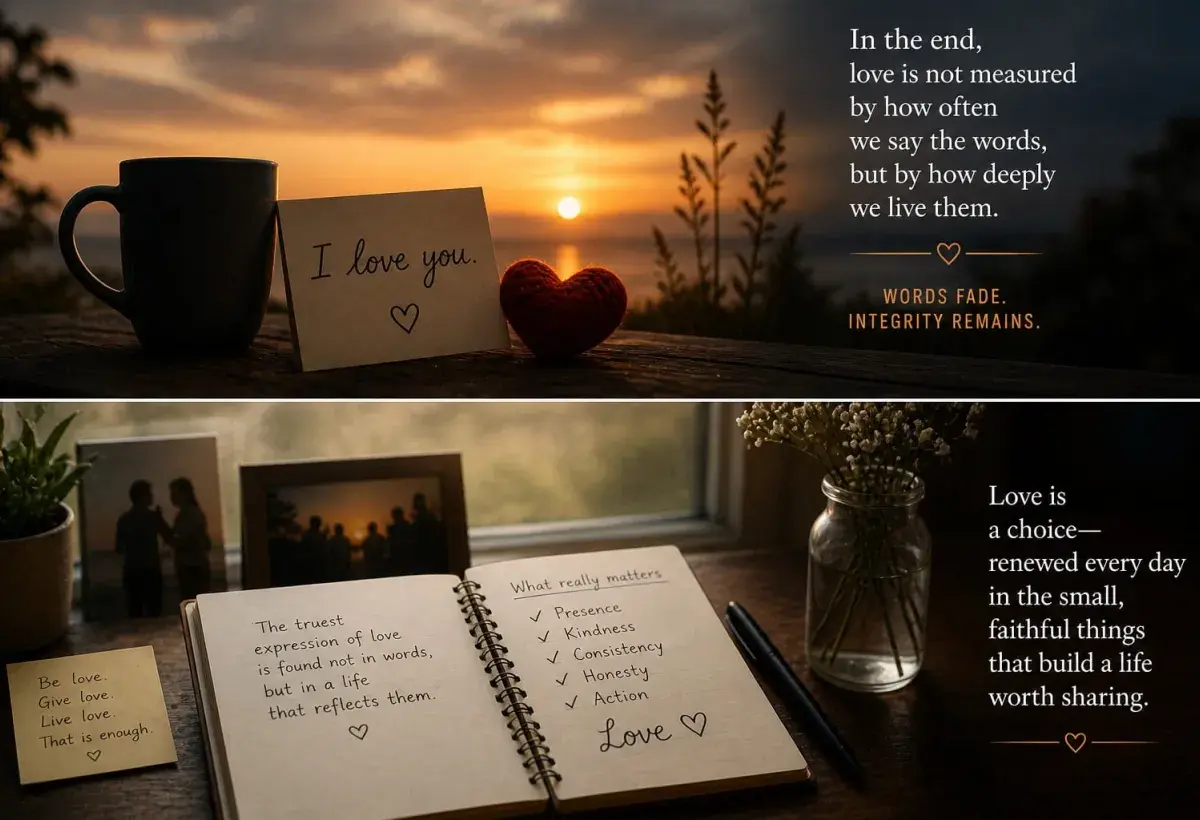 I love you.
In the end,
love is not measured
by how often
we say the words,
but by how deeply
we live them.
WORDS FADE.
INTEGRITY REMAINS.
Be love.
Give love.
Live love.
That is enough.
The truest
expression of love
is found not in words,
but in a life
that reflects them.
What really matters
✓ Presence
✓ Kindness
✓ Consistency
✓ Honesty
✓ Action
Love
Love is
a choice—
renewed every day
in the small,
faithful things
that build a life
worth sharing.